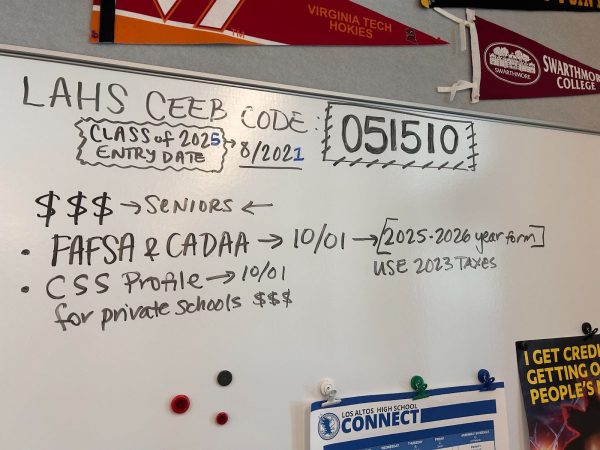 VIRGINIA TECH
HOKIES
SWARTHMORE
SWARTHMORE
COLLEGE
LAHS CEEB CODE: 051510
CLASS of 2025 → 8/2021
ENTRY DATE
$$$ → SENIORS ←
• FAFSA & CADAA → 10/01 → [2025-2026 year form]
USE 2023 TAXES
• CSS Profile → 10/01
for private schools $$$
LOS ALTOS HIGH SCHOOL
CONNECT
I GET CREDI
GETTING O
PEOPLE'S